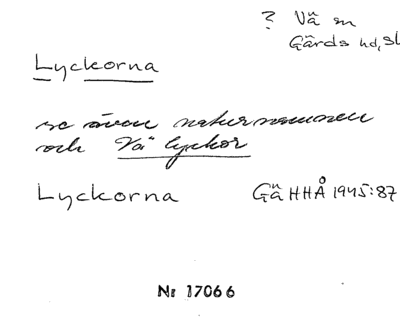 ? Vä sn
Gärds hd, Sk
Lyckorna
se även naturnamnen
och Vä lyckor
Lyckorna Gä HHÅ 1945:87
Nr 17066